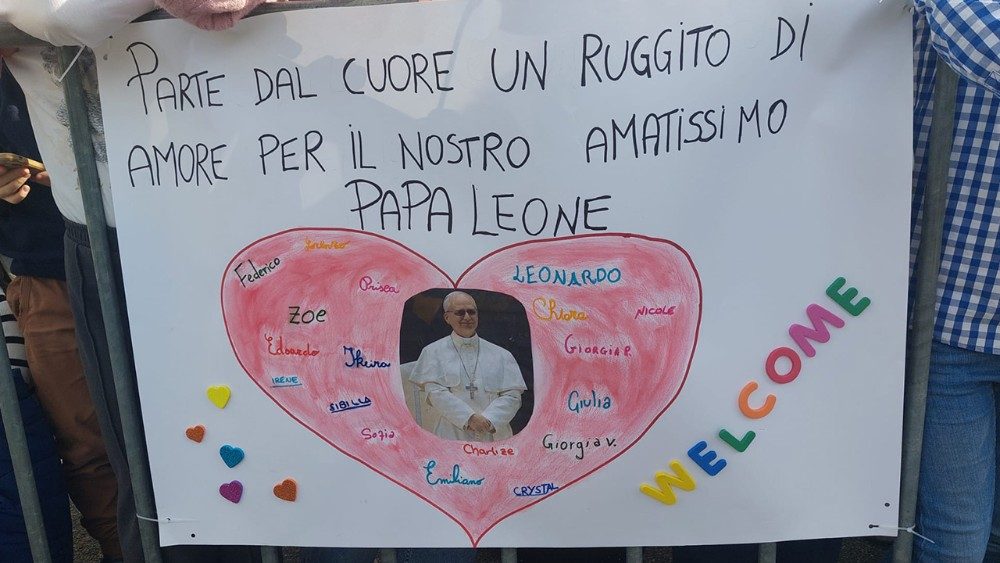 PARTE DAL CUORE UN RUGGITO DI
AMORE PER IL NOSTRO AMATISSIMO
PAPA LEONE
Federico
Prisca
LEONARDO
Zoe
Chiara
NICOLE
Edoardo
GIORGIA P.
IRENE
SIBILLA
Giulia
Sofia
Charlize
Giorgia V.
Emiliano
CRYSTAL
WELCOME